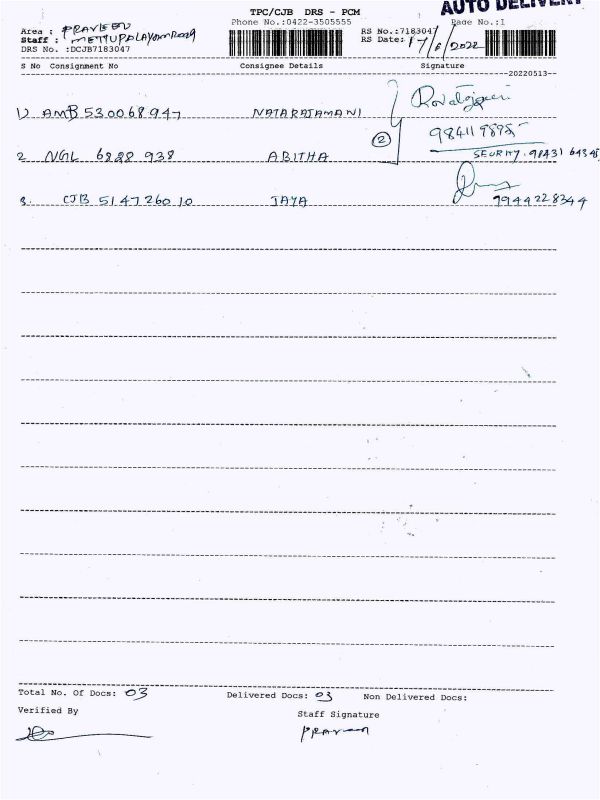 AUTO DELIVERY
TPC/CJB DRS - PCM
Phone No.:0422-3505555
Page No.:1
Area : PRAVEEN
Staff : METTUPALAYAM ROAD
DRS No. :DCJB7183047
RS No.:7183047
RS Date: 17/6/2022
S No Consignment No Consignee Details Signature
20220513
1) AMB 530068947 NATARAJAMANI
(2) 984119895
2. NGL 6828 938 ABITHA SEQRITY. 98431 64345
3. CJB 514726010 JAYA 9944228344
Total No. Of Docs: 03 Delivered Docs: 03 Non Delivered Docs:
Verified By Staff Signature
PRAVEEN